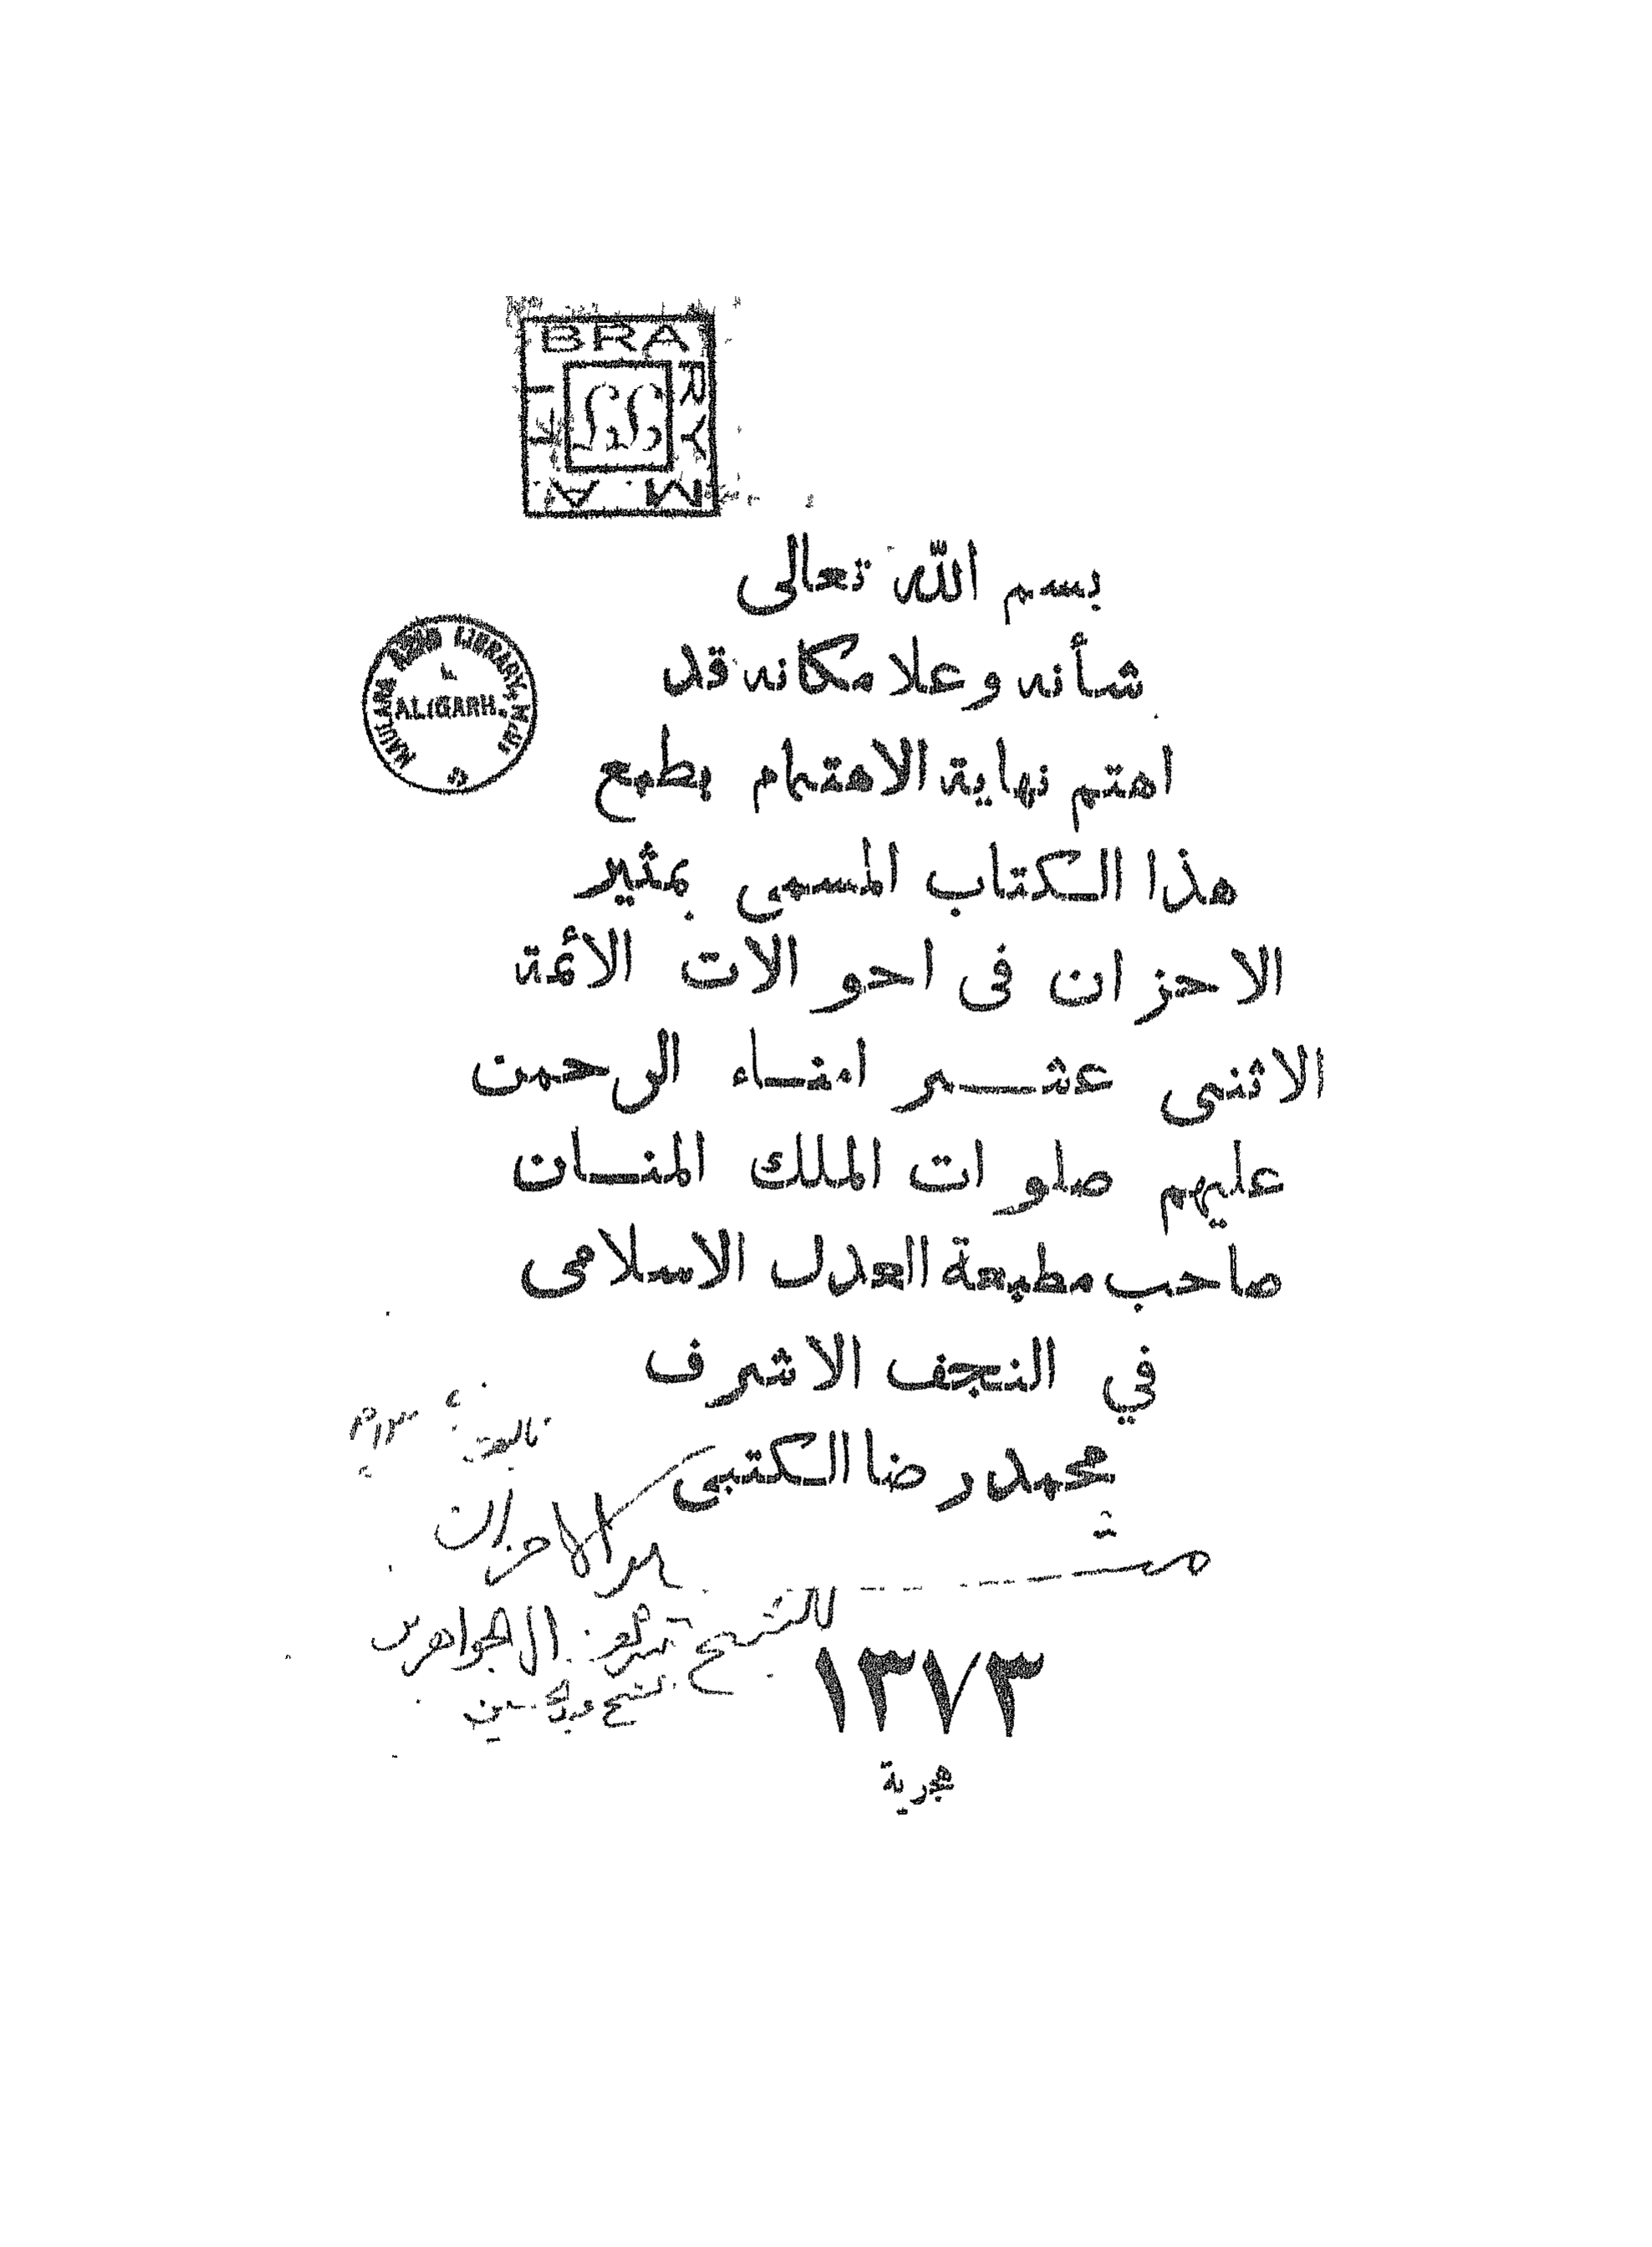 BRARY
MAULANA AZAD LIBRARY
ALIGARH.
بسم الله تعالى
شأنه وعلا مكانه قد
اهتم نهاية الاهتمام بطبع
هذا الكتاب المسمى بمثير
الاحزان فى احوالات الأئمة
الاثنى عشر امناء الرحمن
عليهم صلوات الملك المنان
صاحب مطبعة العدل الاسلامى
في النجف الاشرف
محمد رضا الكتبى
الاحزان
للشيخ شريف ال الجواهر
١٣٧٣
هجرية